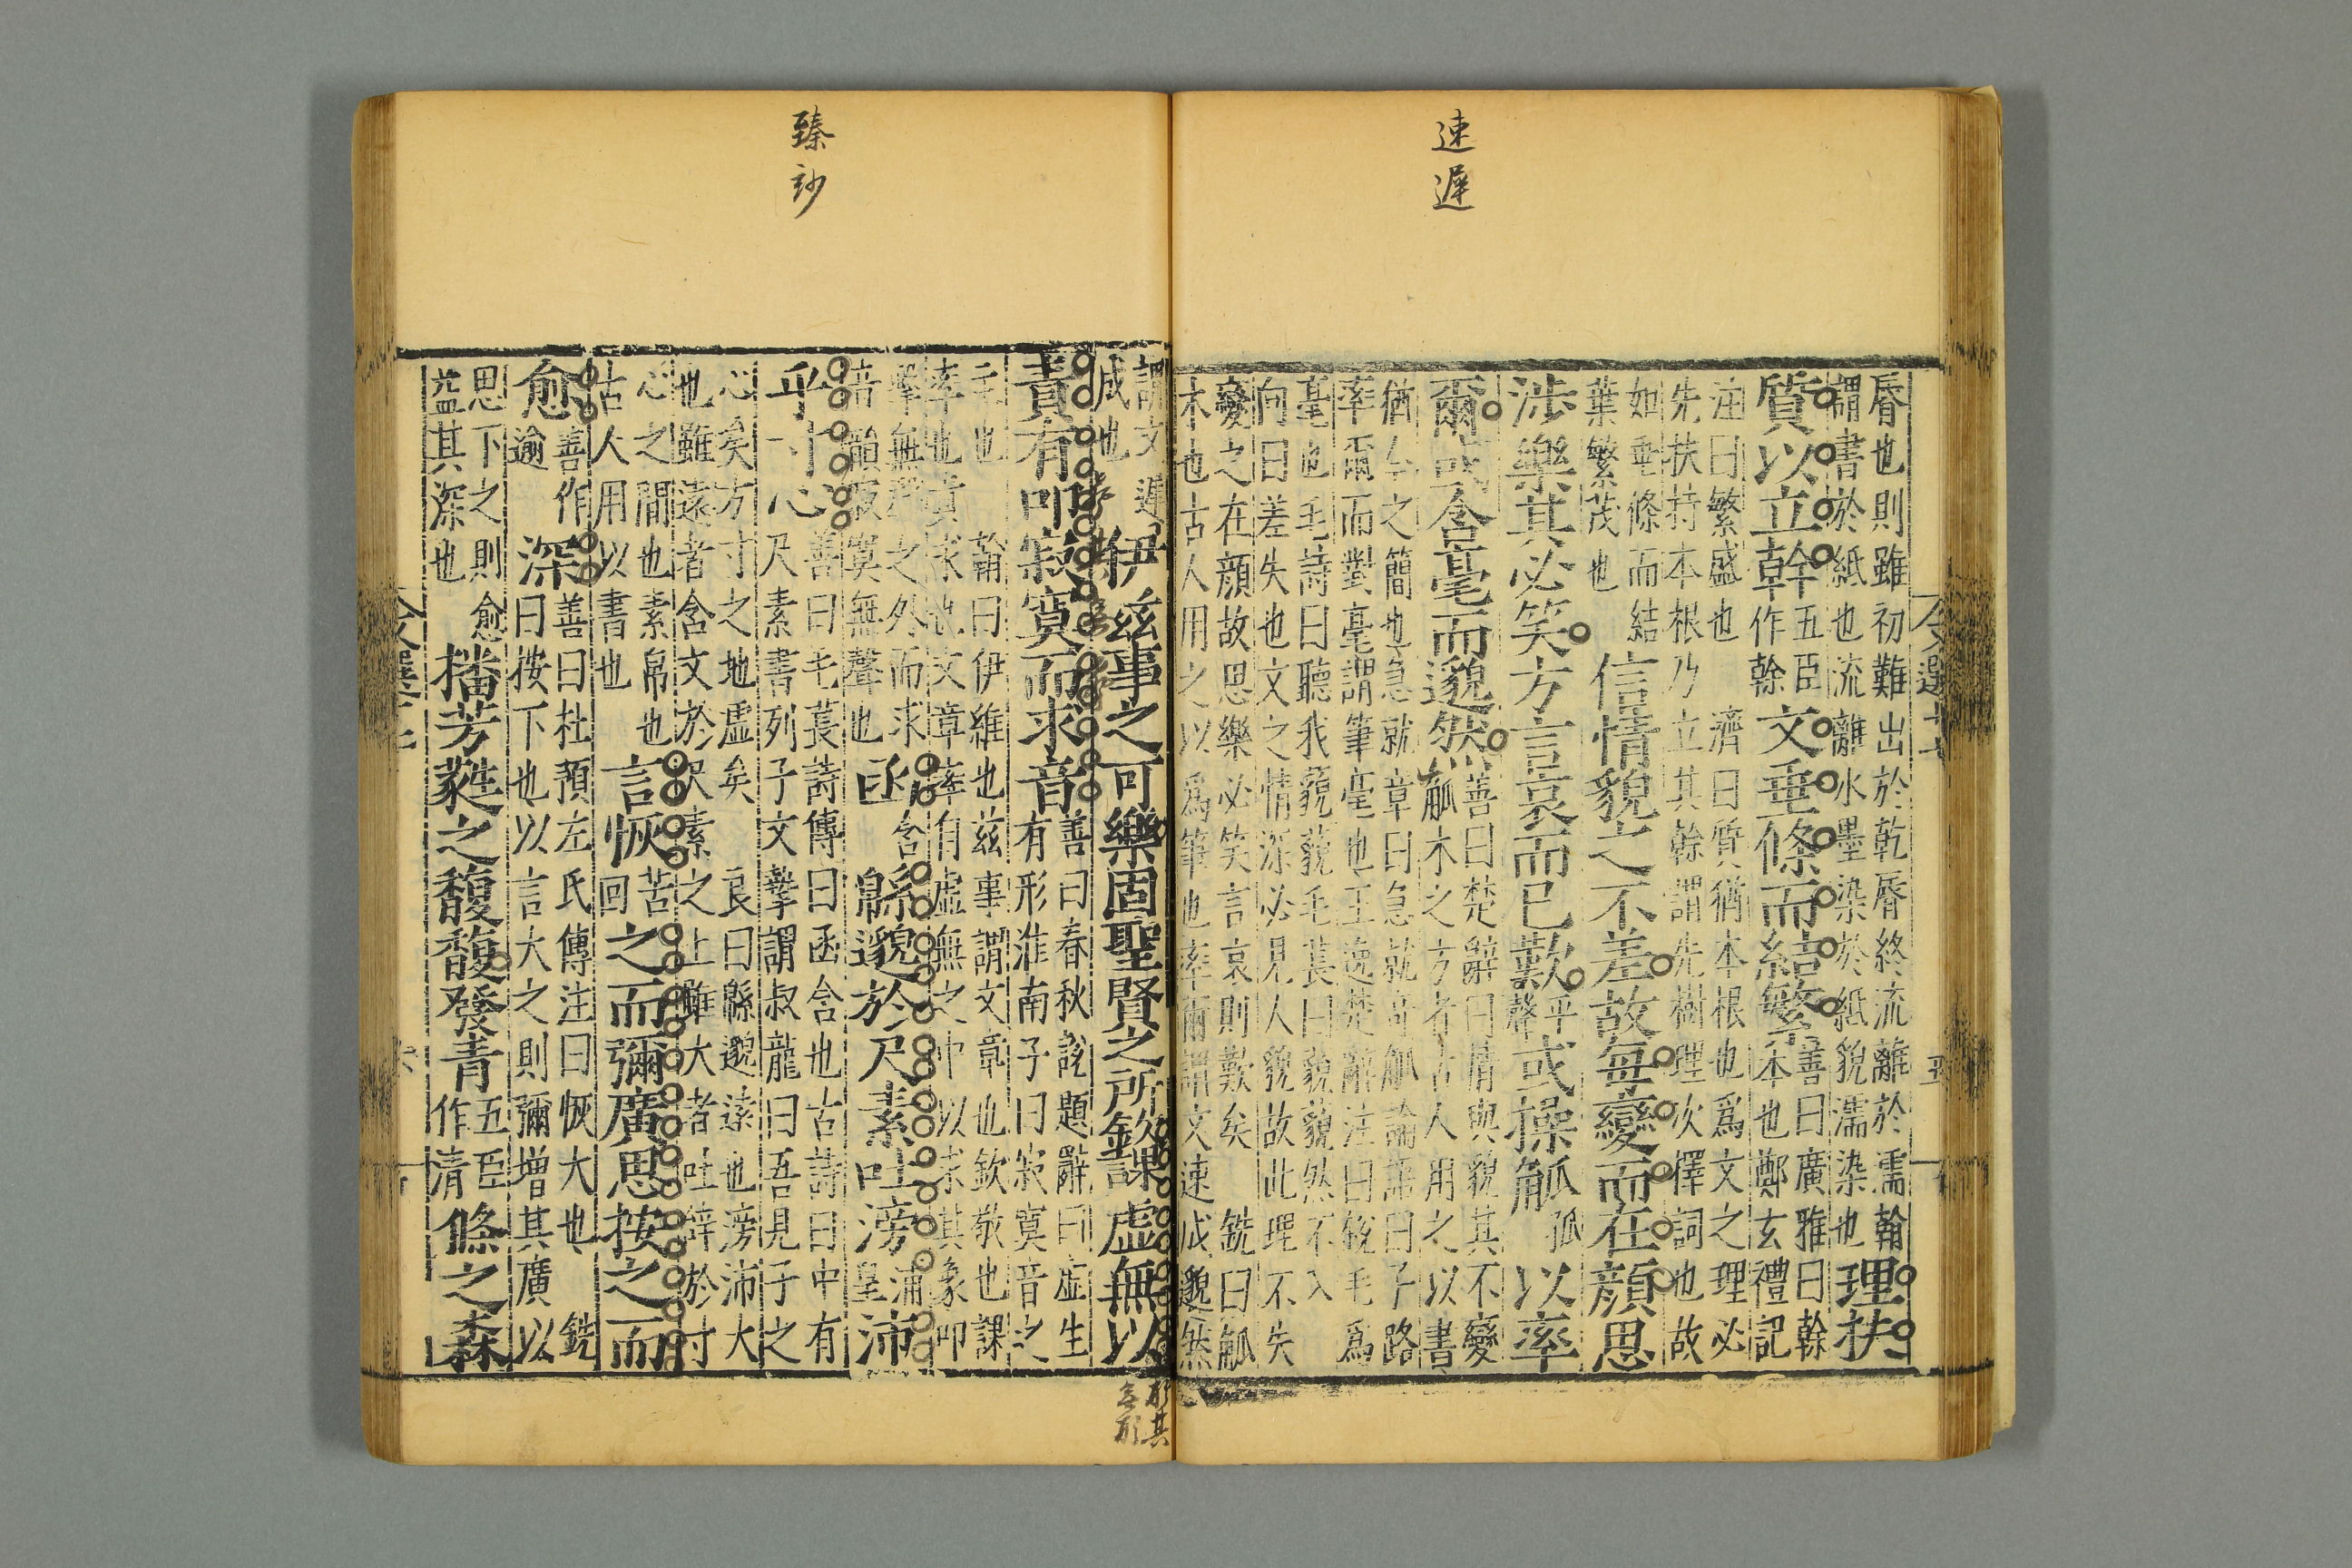 速遲
脣也則雖初難出於乾脣終流離於濡翰
謂書於紙也流離水墨染於紙貌濡染也
理扶
質以立幹
五臣
作幹
文垂條而結繁
善曰廣雅曰幹
本也鄭玄禮記
注曰繁盛也
濟曰質猶本根也爲文之理必
先扶持本根乃立其幹謂先樹理次擇詞也故
如垂條而結
葉繁茂也
信情貌之不差故每變而在顔思
涉樂其必笑方言哀而已歎
平
聲
或操觚
孤
以率
爾或含毫而邈然
善曰楚辭曰情與貌其不變
觚木之方者古人用之以書
猶今之簡也急就章曰急就奇觚論語曰子路
率爾而對毫謂筆毫也王逸楚辭注曰銳毛爲
毫也毛詩曰聽我藐藐毛萇曰藐藐然不入
向曰差失也文之情深必見人貌故此理不失
變之在顔故思樂必笑言哀則歎矣
銑曰觚
木也古人用之以爲筆也率爾謂文速成邈然
臻妙
謂文遲
成也
伊兹事之可樂固聖賢之所欽課虛無以
責有叩寂寞而求音
善曰春秋說題辭曰虛生
有形淮南子曰寂寞音之
主也
翰曰伊維也兹事謂文章也欽敬也課
率也責求也文章率自虛無之中以求其象叩
擊無聲之外而求
音韻寂寞無聲也
函
含
緜邈於尺素吐滂
滂
浦
皇
沛
乎寸心
善曰毛萇詩傳曰函含也古詩曰中有
尺素書列子文摯謂叔龍曰吾見子之
心矣方寸之地虛矣
良曰緜邈遠也滂沛大
也雖遠者含文於尺素之上雖大者吐辭於寸
心之間也素帛也
古人用以書也
言恢
苦
回
之而彌廣思按之而
愈
善作
逾
深
善曰杜預左氏傳注曰恢大也
銑
曰按下也以言大之則彌增其廣以
思下之則愈
益其深也
播芳蕤之馥馥發青
五臣
作清
條之森